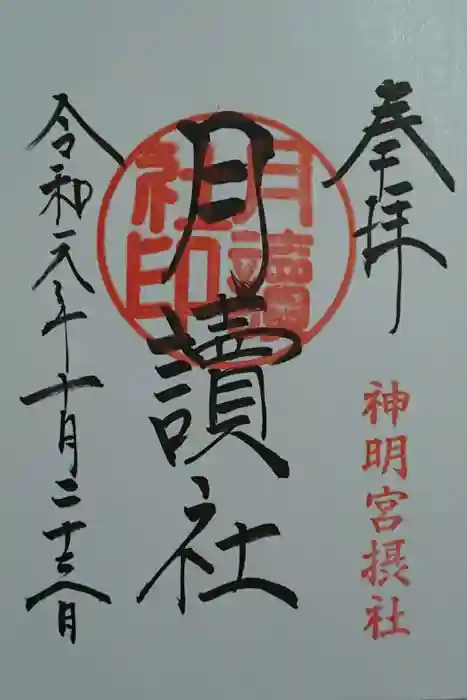 奉拝
神明宮摂社
月讀社
月讀
社印
令和元年十月二十六日